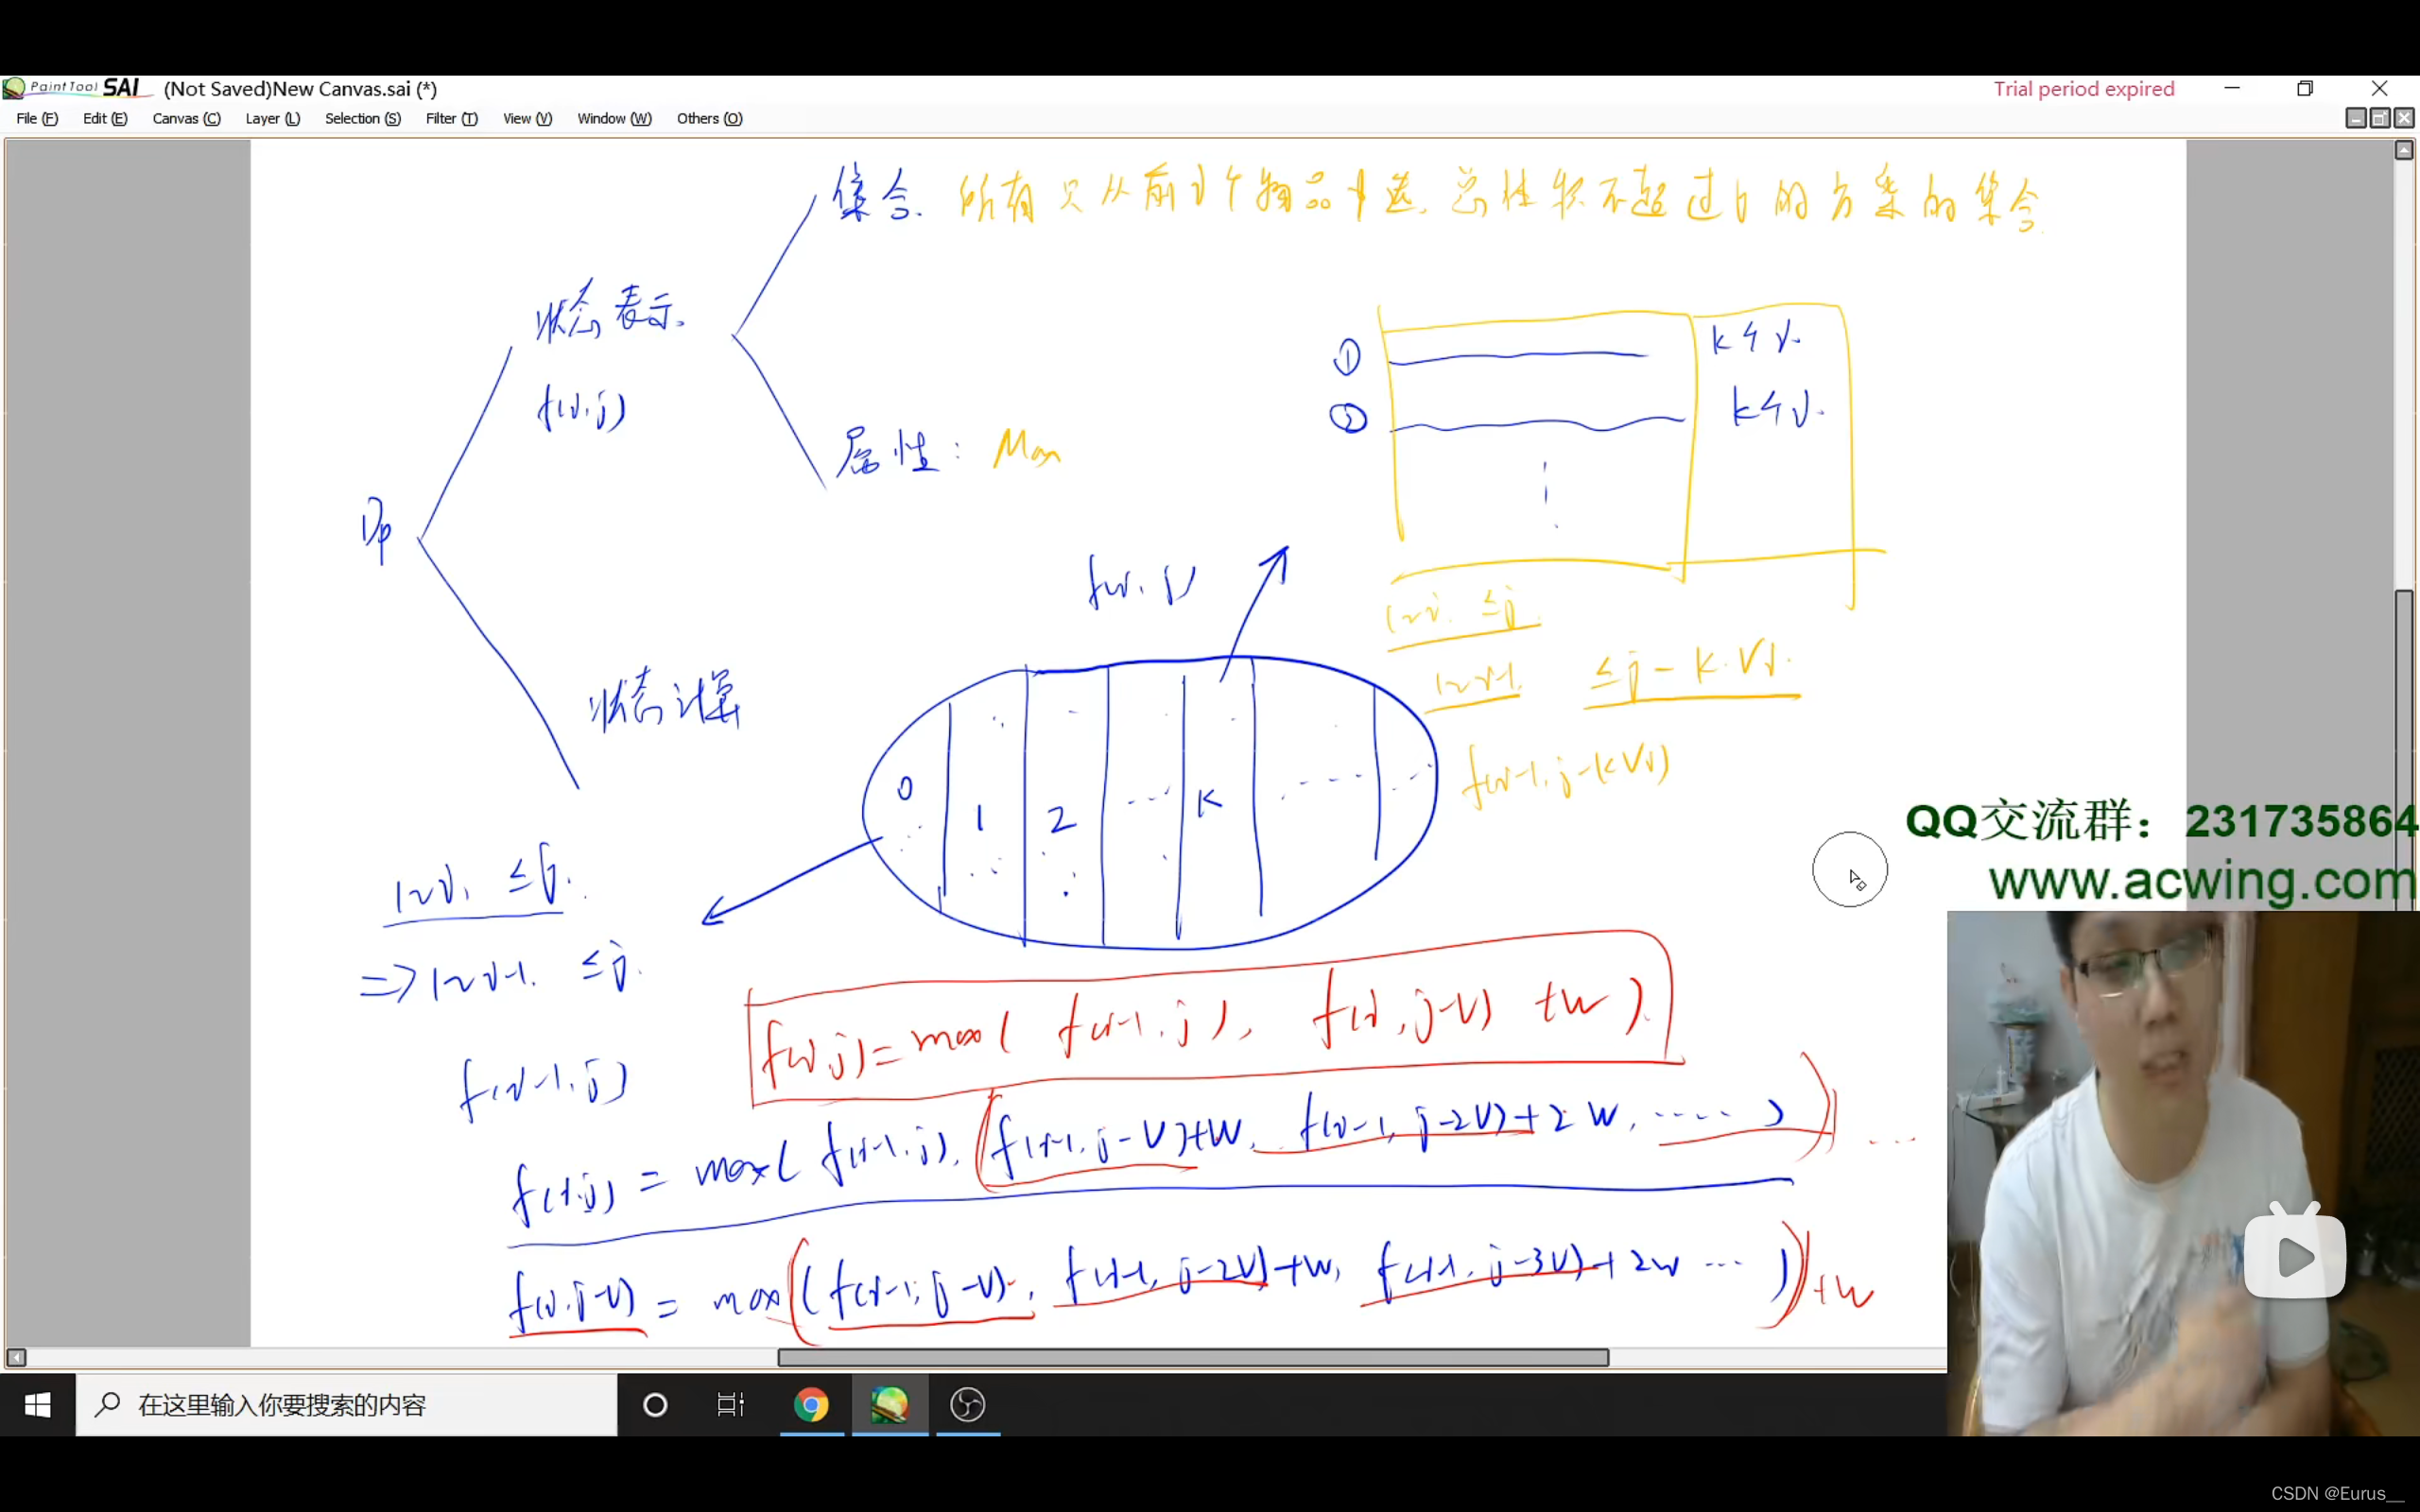 PaintTool SAI (Not Saved)New Canvas.sai (*)
Trial period expired
File (F) Edit (E) Canvas (C) Layer (L) Selection (S) Filter (T) View (V) Window (W) Others (O)
集合. 所有只从前i个物品中选,总体积不超过j的方案的集合
状态表示.
f(i,j)
① k个i.
② k个i.
属性: Max
Dp
f(i, j)
1~i. ≤j.
1~i-1. ≤j-k·Vi.
状态计算
f(i-1, j-kVi)
0 1 2 ... K ....
QQ交流群：231735864
www.acwing.com
1~i, ≤j.
=> 1~i-1. ≤j.
f(i,j)=max( f(i-1,j), f(i,j-V) +W ).
f(i-1,j)
f(i,j) = max( f(i-1,j), f(i-1,j-V)+W, f(i-1,j-2V)+2W, ..... ) ...
f(i,j-V) = max( f(i-1,j-V), f(i-1,j-2V)+W, f(i-1,j-3V)+2W ... ) +W
在这里输入你要搜索的内容
CSDN @Eurus__